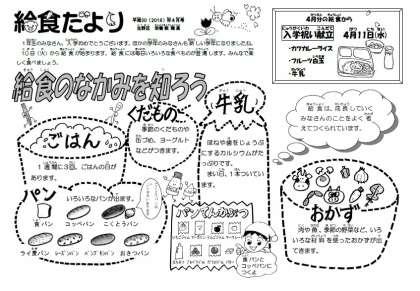 給食だより
平成30(2018)年4月号
1年生のみなさん、入学おめでとうございます。ほかの学年のみなさんも新しい学年になりましたね。
10日(火)から給食が始まります。給食には毎日いろいろな食品が登場します。みんなで楽
しく食べましょう。
4月分の給食から
入学祝い献立 4月11日(水)
・カツカレーライス
・フルーツ白玉
・牛乳
給食のなかみを知ろう
ごはん
1週間に3回、ごはんの日が
あります。
くだもの
季節のくだものや
缶づめ、ヨーグルト
などがつきます。
牛乳
ほねや歯をじょうぶ
にするカルシウムがた
っぷりです。
まい日、1本ついてい
ます。
給食は、成長していく
みなさんのことをよく考
えてつくられています。
パン
いろいろなパンが出ます。
食パン
コッペパン
こくとうパン
ライ麦パン
レーズンパン
パンプキンパン
おさつパン
パンてんかぶつ
食パンと
コッペパンに
つくよ
おかず
肉や魚、季節の野菜など、いろ
いろな材料を使ったおかずが出
てきます。